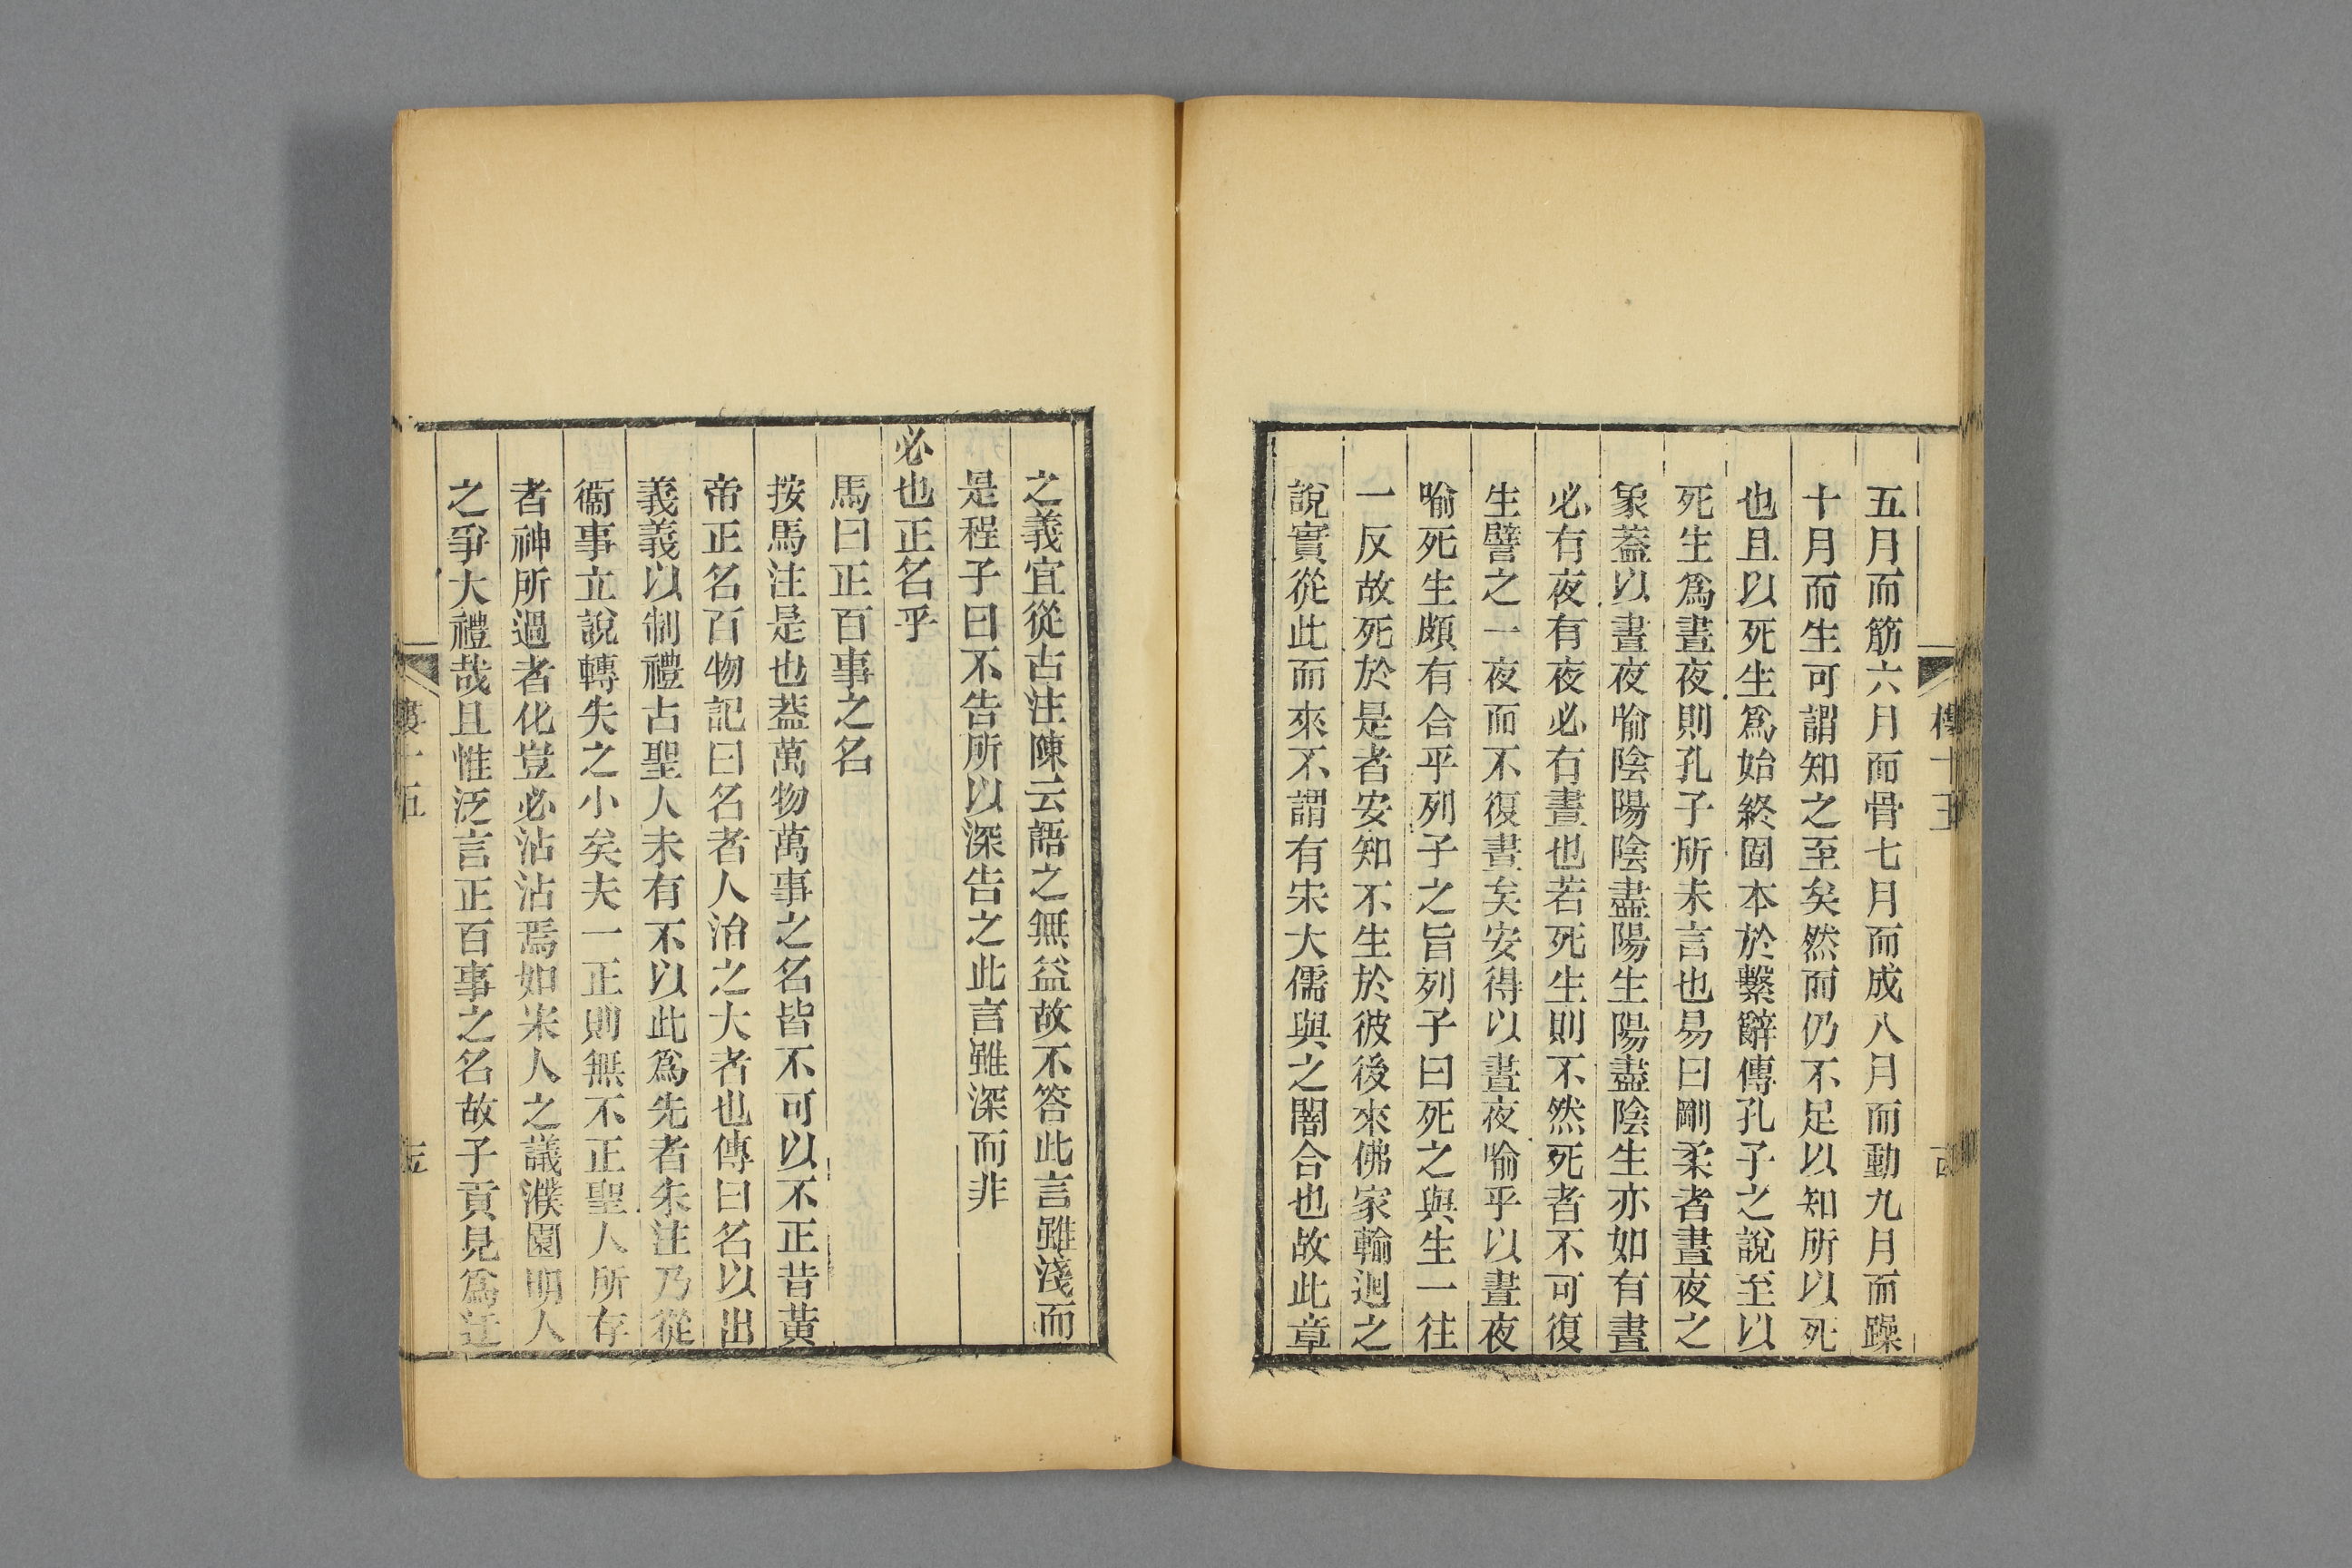 五月而筋六月而骨七月而成八月而動九月而躁
十月而生可謂知之至矣然而仍不足以知所以死
也且以死生爲始終固本於繫辭傳孔子之說至以
死生爲晝夜則孔子所未言也易曰剛柔者晝夜之
象葢以晝夜喻陰陽陰盡陽生陽盡陰生亦如有晝
必有夜有夜必有晝也若死生則不然死者不可復
生譬之一夜而不復晝矣安得以晝夜喻乎以晝夜
喻死生頗有合乎列子之旨列子曰死之與生一往
一反故死於是者安知不生於彼後來佛家輪迴之
說實從此而來不謂有宋大儒與之闇合也故此章
之義宜從古注陳云語之無益故不答此言雖淺而
是程子曰不告所以深告之此言雖深而非
必也正名乎
馬曰正百事之名
按馬注是也葢萬物萬事之名皆不可以不正昔黃
帝正名百物記曰名者人治之大者也傳曰名以出
義義以制禮古聖人未有不以此爲先者朱注乃從
衞事立說轉失之小矣夫一正則無不正聖人所存
者神所過者化豈必沾沾焉如宋人之議濮園明人
之爭大禮哉且惟泛言正百事之名故子貢見爲迂
十五